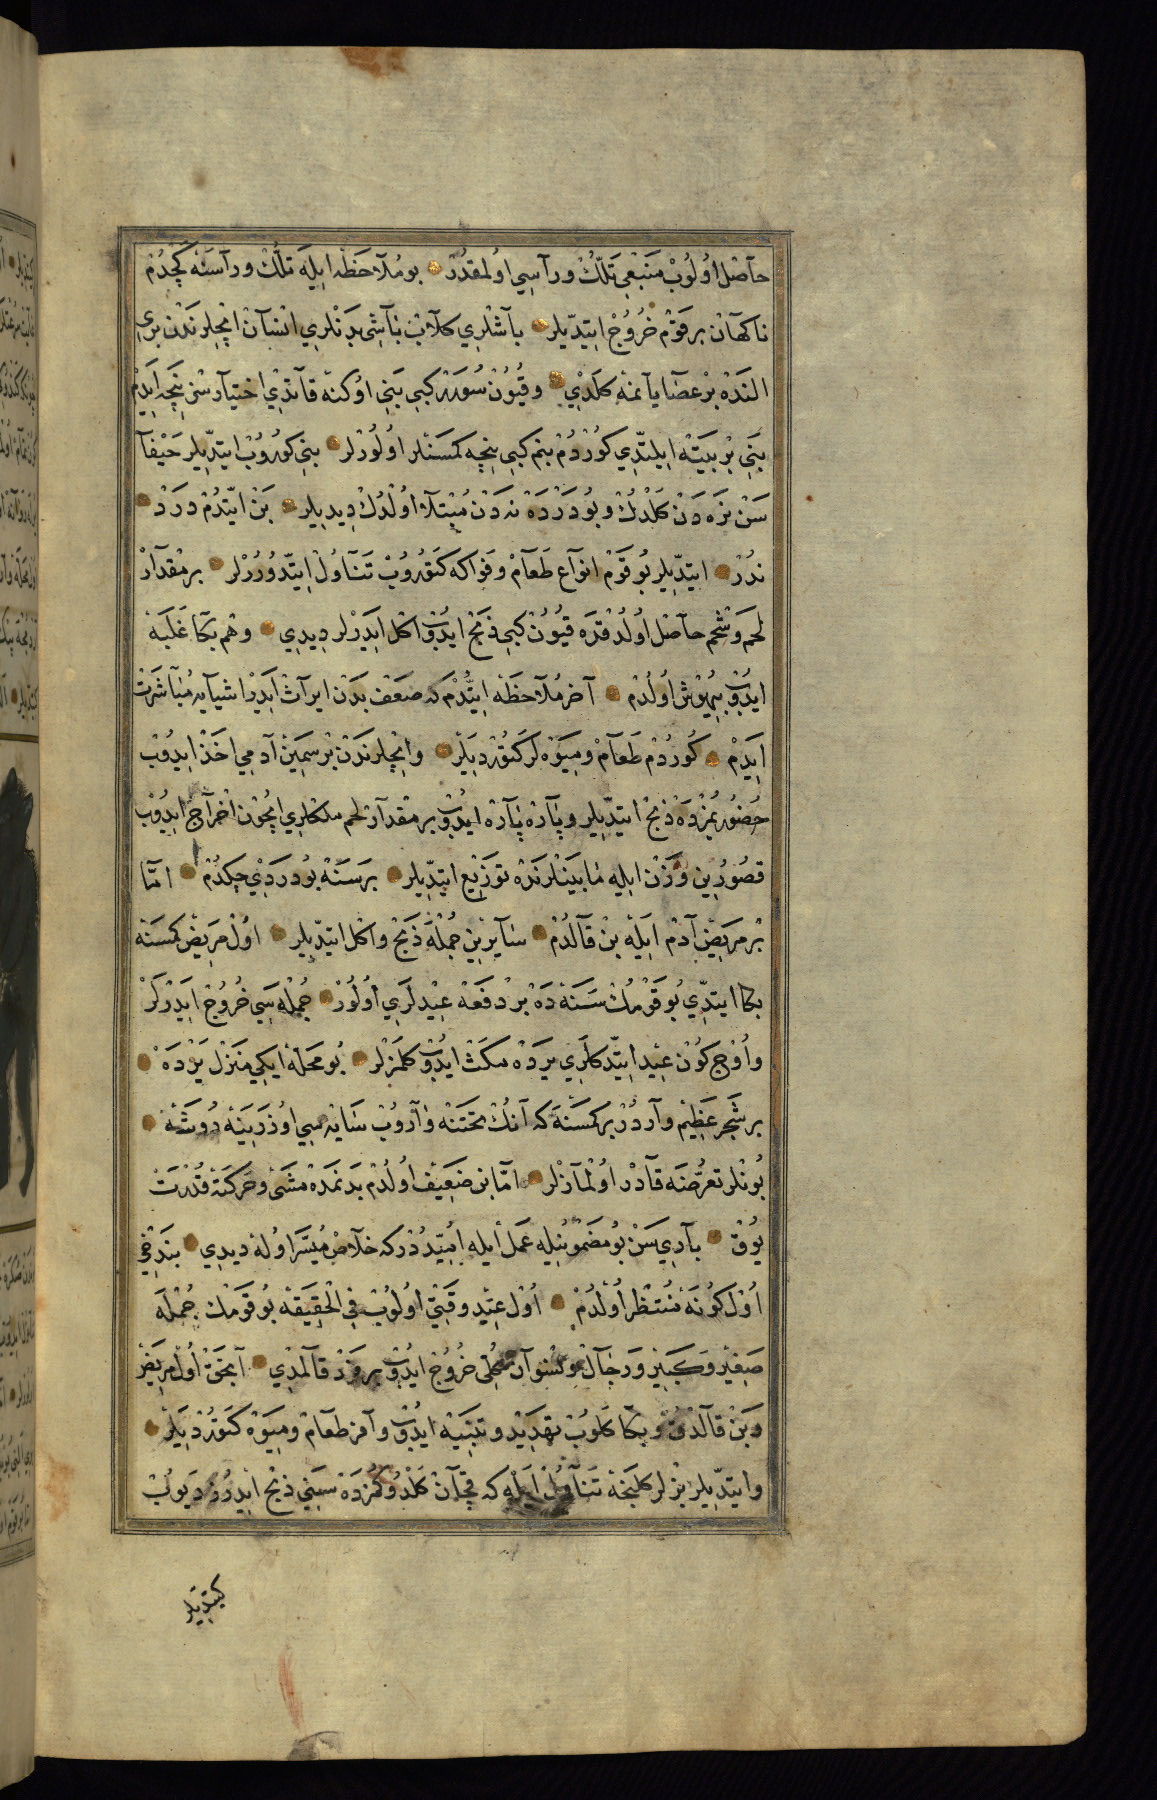 حاصل اولوب منبعي تلّك وراسي اولمقدر بو ملاحظه ايله تلّك وراسنه كچدم
ناكهان بر قوم خروج ايتديلر باشلري كلاب باشي بدنلري انسان ايچلرندن بري
النده بر عصا يانمه كلدي وقيون سورر كبي بني اوكنه قاتدي اختيارسز نيجه ايدم
بني بر بيته ايلتدي كوردم بنم كبي نيجه كمسنلر اولورلر بني كوروب ايتديلر حيفا
سن نره دن كلدك وبو درده نه دن مبتلا اولدك ديديلر بن ايتدم درد
ندر ايتديلر بو قوم انواع طعام وفواكه كتوروب تناول ايتدوررلر بر مقدار
لحم وشحم حاصل اولدقده قيون كبي ذبح ايدوب اكل ايدرلر ديدي وهم بكا غلبه
ايدوب بيهوش اولدم آخر ملاحظه ايتدم كه ضعف بدن ايراث ايدر اشيايه مباشرت
ايدم كوردم طعام وميوه لر كتورديلر وايچلرندن بر سمين آدمي اخذ ايدوب
حضورمزده ذبح ايتديلر وپاره پاره ايدوب بر مقدار لحم ملكلري ايچون اخراج ايدوب
قصورين وزن ايله مابينلرنده توزيع ايتديلر بر سنه بو دردي چكدم امّا
بر مريض آدم ايله بن قالدم سايرين جمله ذبح واكل ايتديلر اول مريض كمسنه
بكا ايتدي بو قومك سنه ده بر دفعه عيدلري اولور جمله سي خروج ايدرلر
واوچ كون عيد ايتدكلري يرده مكث ايدوب كلمزلر بو محله ايكي منزل يرده
بر شجر عظيم واردر بر كمسنه كه آنك تحتنه واروب سايه سي اوزربينه دوشه
بونلر تعرضنه قادر اولمازلر امّا بن ضعيف اولدم بدنمده مشي وحركته قدرت
يوق باري سن بو مضمونيله عمل ايله اميددر كه خلاص ميسر اوله ديدي بندخي
اول كونه منتظر اولدم اول عيد وقتي اولوب في الحقيقه بو قومك جمله
صغير وكبير ورجال ونسوان كلي خروج ايدوب بر فرد قالمدي آنجق اول مريض
وبن قالدق وبكا كلوب تهديد وتنبيه ايدوب وافر طعام وميوه كتورديلر
وايتديلر بزلر كلنجه تناول ايله كه قچان كلدوكمزده سني ذبح ايدرز ديوب
كيتديلر